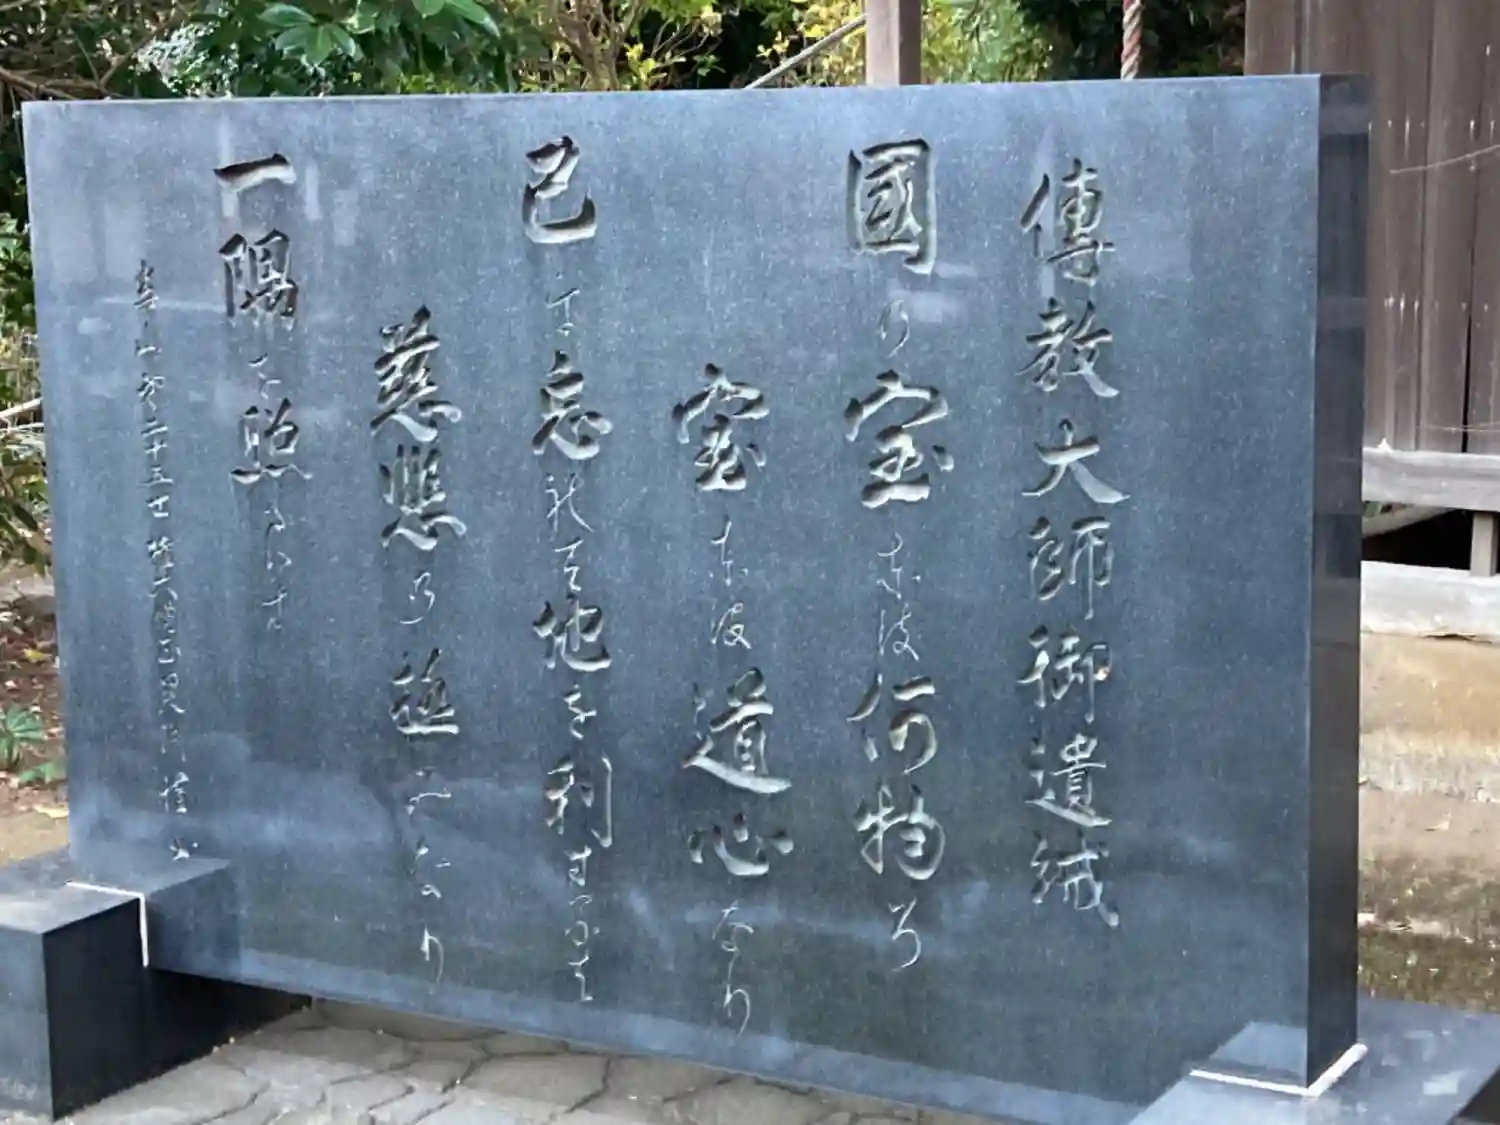 傳教大師御遺誡
國の宝とは何物そ
宝とは道心なり
己を忘れて他を利するは
慈悲の極みなり
一隅を照
二十五世